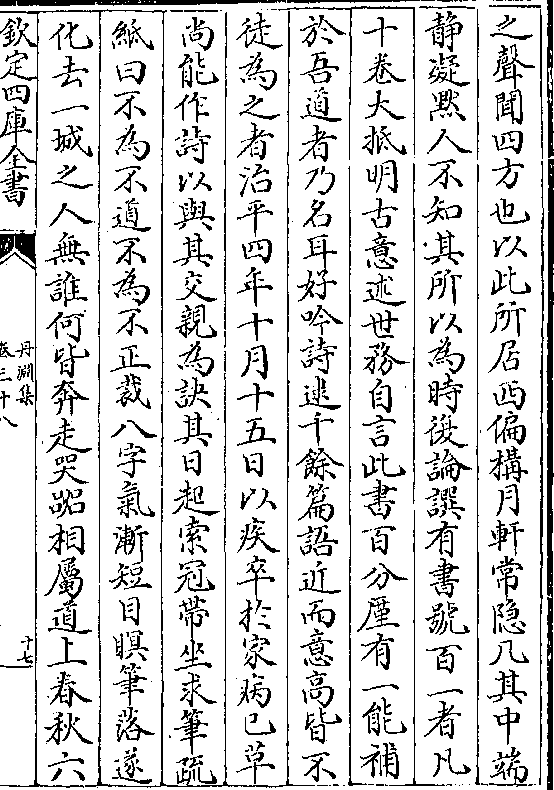 之聲聞四方也以此所居西偏構月軒常隐几其中端
静凝黙人不知其所以為時復論譔有書號百一者凡
十卷大抵明古意述世務自言此書百分厪有一能補
於吾道者乃名耳好吟詩逮千餘篇語近而意高皆不
徒為之者治平四年十月十五日以疾卒於家病已草
尚能作詩以與其交親為訣其日起索冠帶坐求筆疏
紙曰不為不道不為不正裁八字氣漸短目瞑筆落遂
化去一城之人無誰何皆奔走哭㗲相屬道上春秋六
欽定四庫全書
丹淵集
卷三十八
十七